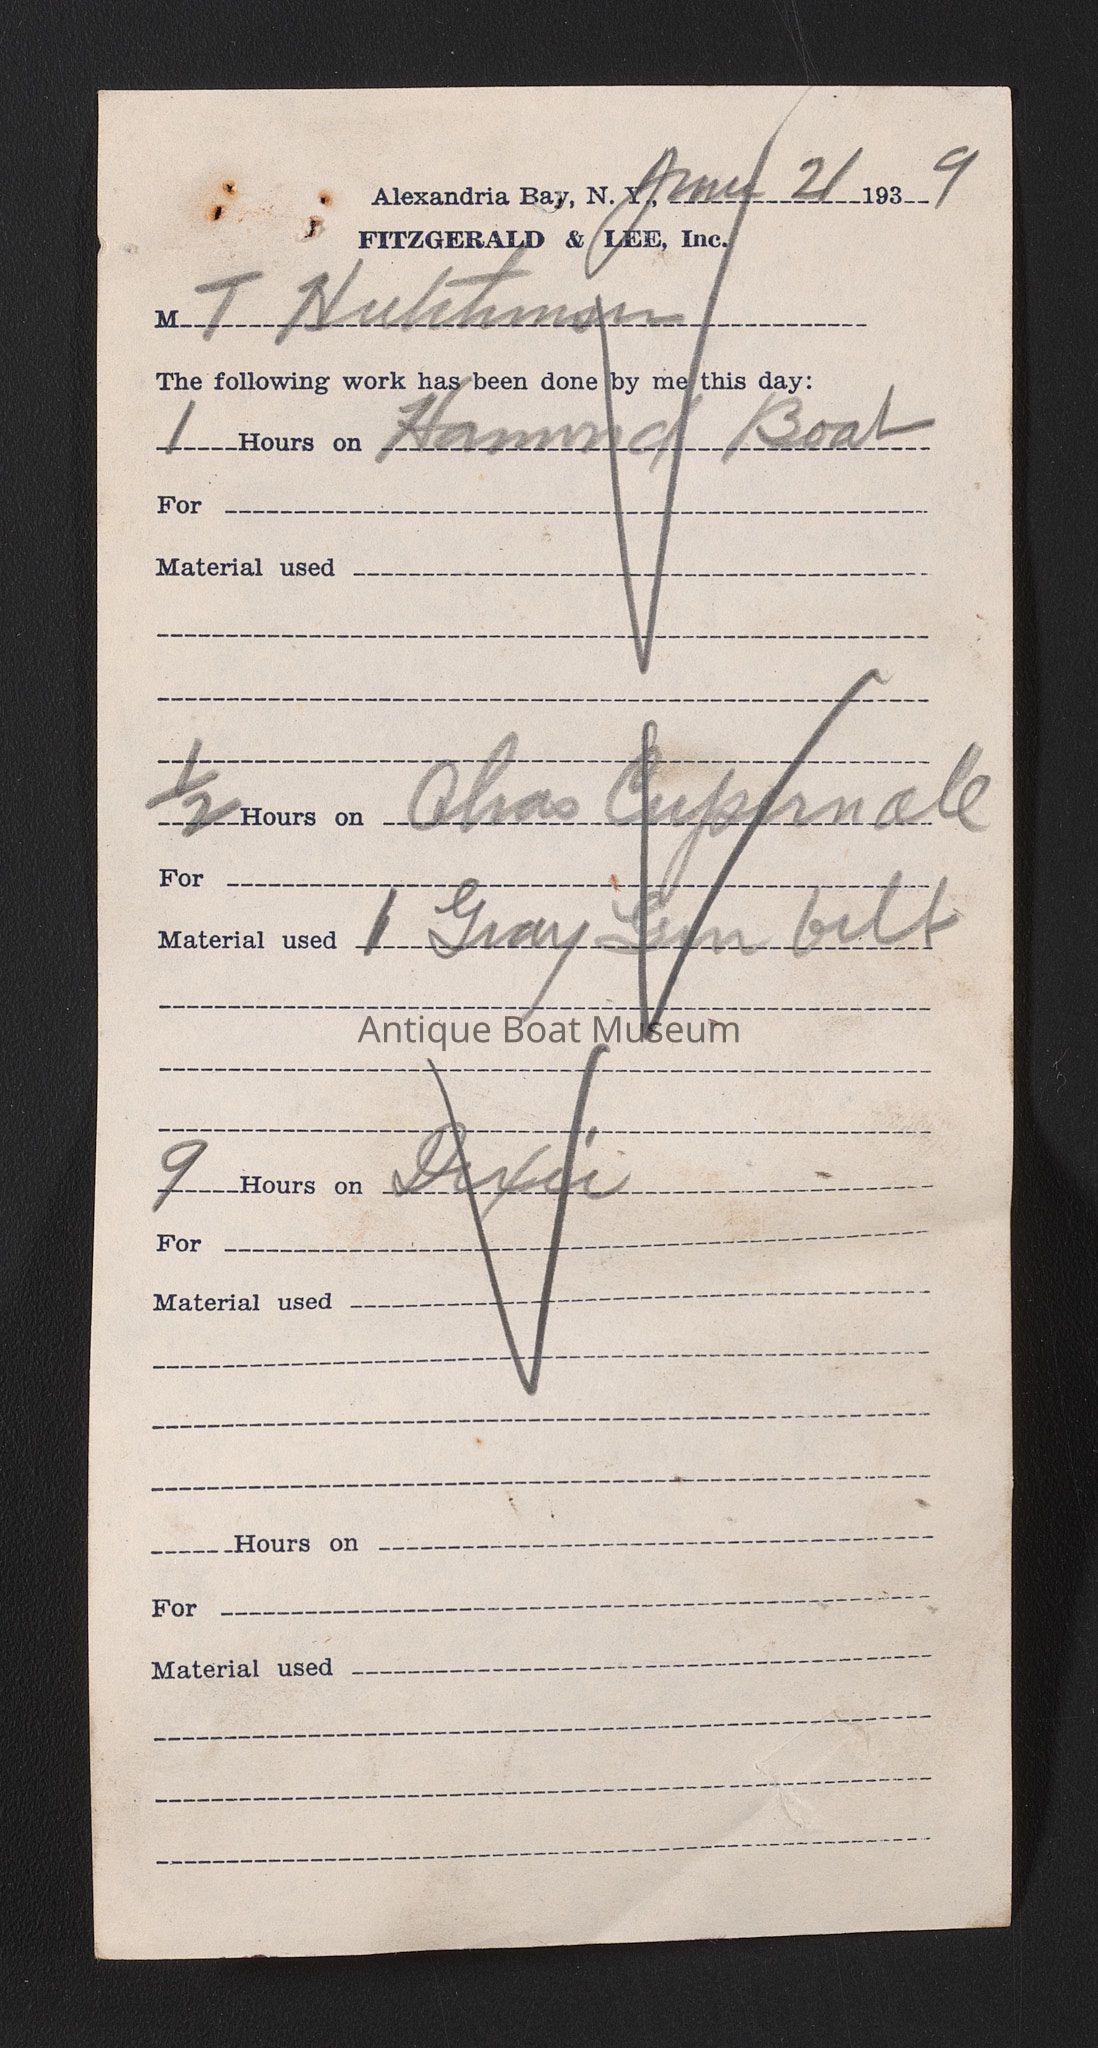 Alexandria Bay, N. Y., June 21 1939
FITZGERALD & LEE, Inc.
M T Hutchinson
The following work has been done by me this day:
1 Hours on Hammond Boat
For
Material used
1/2 Hours on Chas Cupernall
For
Material used 1 Gray Gen belt
Antique Boat Museum
9 Hours on Dixie
For
Material used
Hours on
For
Material used